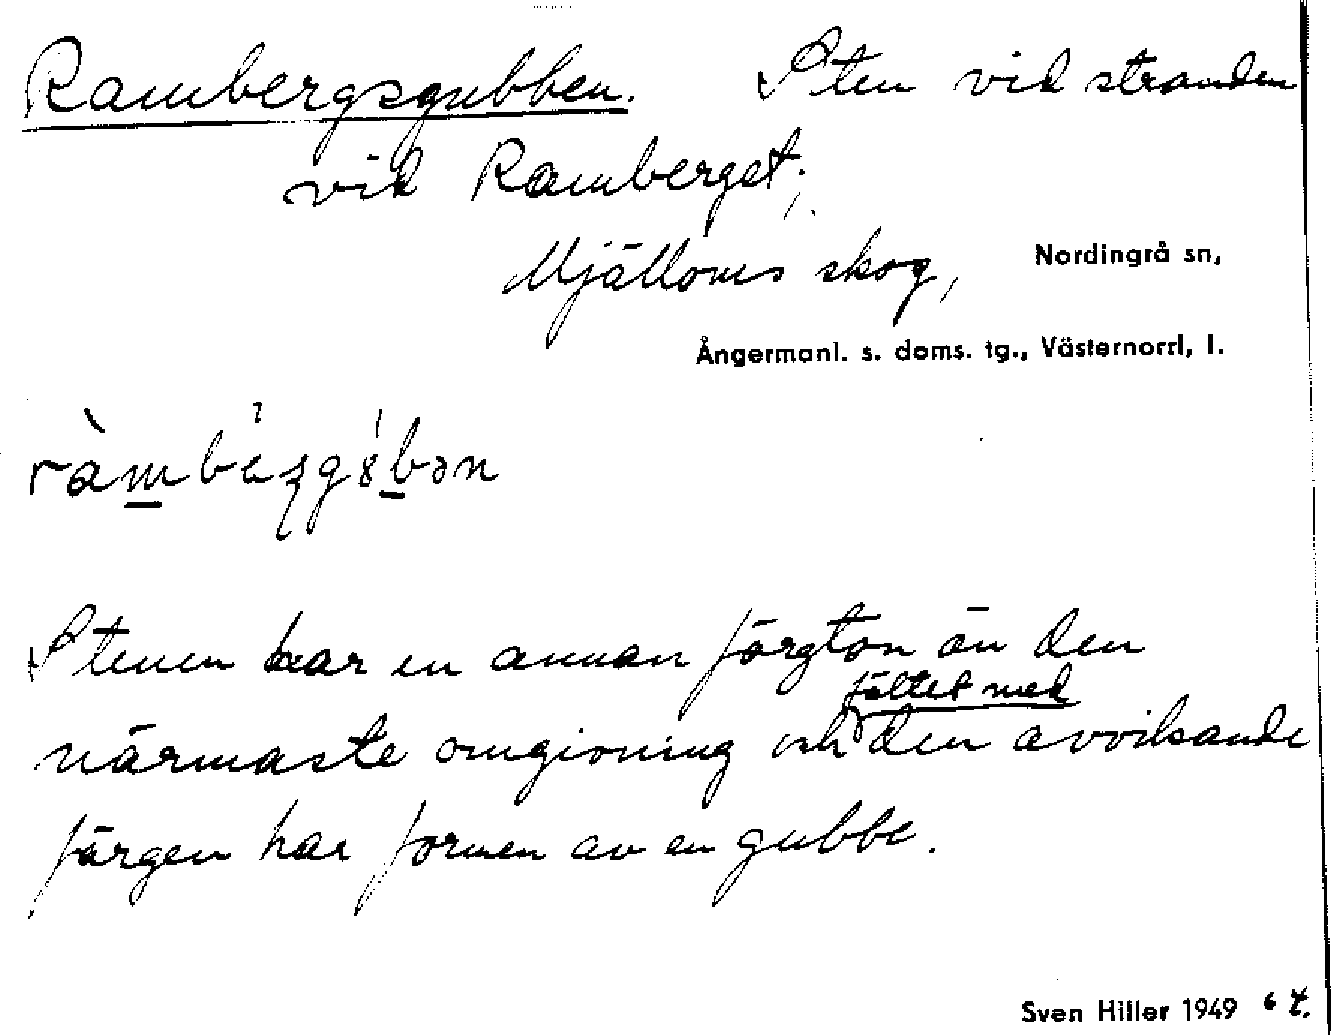 Rambergsgubben. Sten vid stranden
vid Ramberget;
Mjälloms skog, Nordingrå sn,
Ångermanl. s. doms. tg., Västernorrl, l.
Stenen har en annan färgton än den
fältet med
närmaste omgivning och den avvikande
färgen har formen av en gubbe.
Sven Hiller 1949